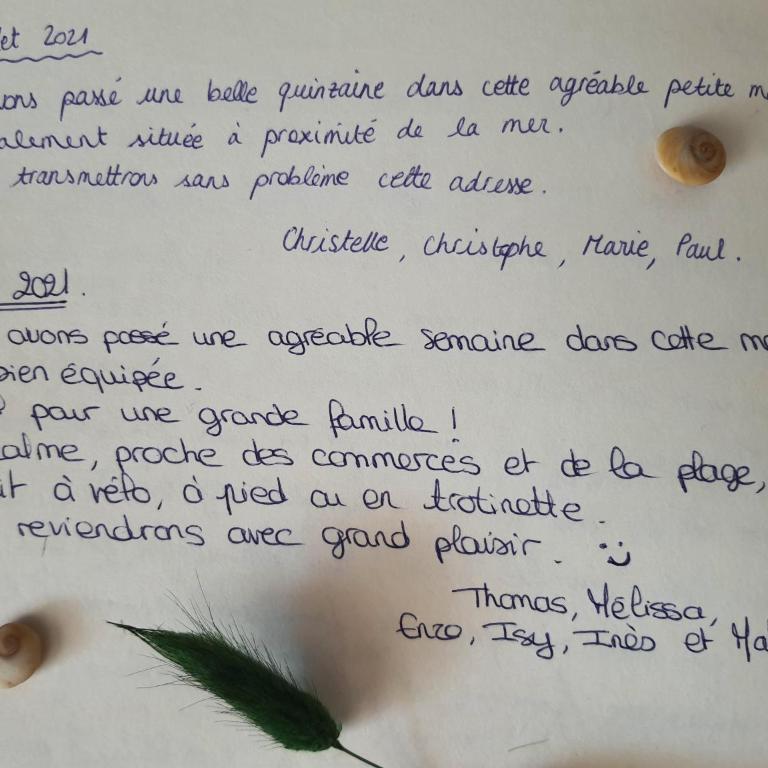 let 2021
ons passé une belle quinzaine dans cette agréable petite m
alement située à proximité de la mer.
transmettrons sans problème cette adresse.
Christelle, Christophe, Marie, Paul.
2021.
avons passé une agréable semaine dans cette m
bien équipée.
pour une grande famille !
alme, proche des commerces et de la plage,
it à vélo, à pied ou en trotinette.
reviendrons avec grand plaisir. :)
Thomas, Mélissa,
Enzo, Isy, Inès et Ma